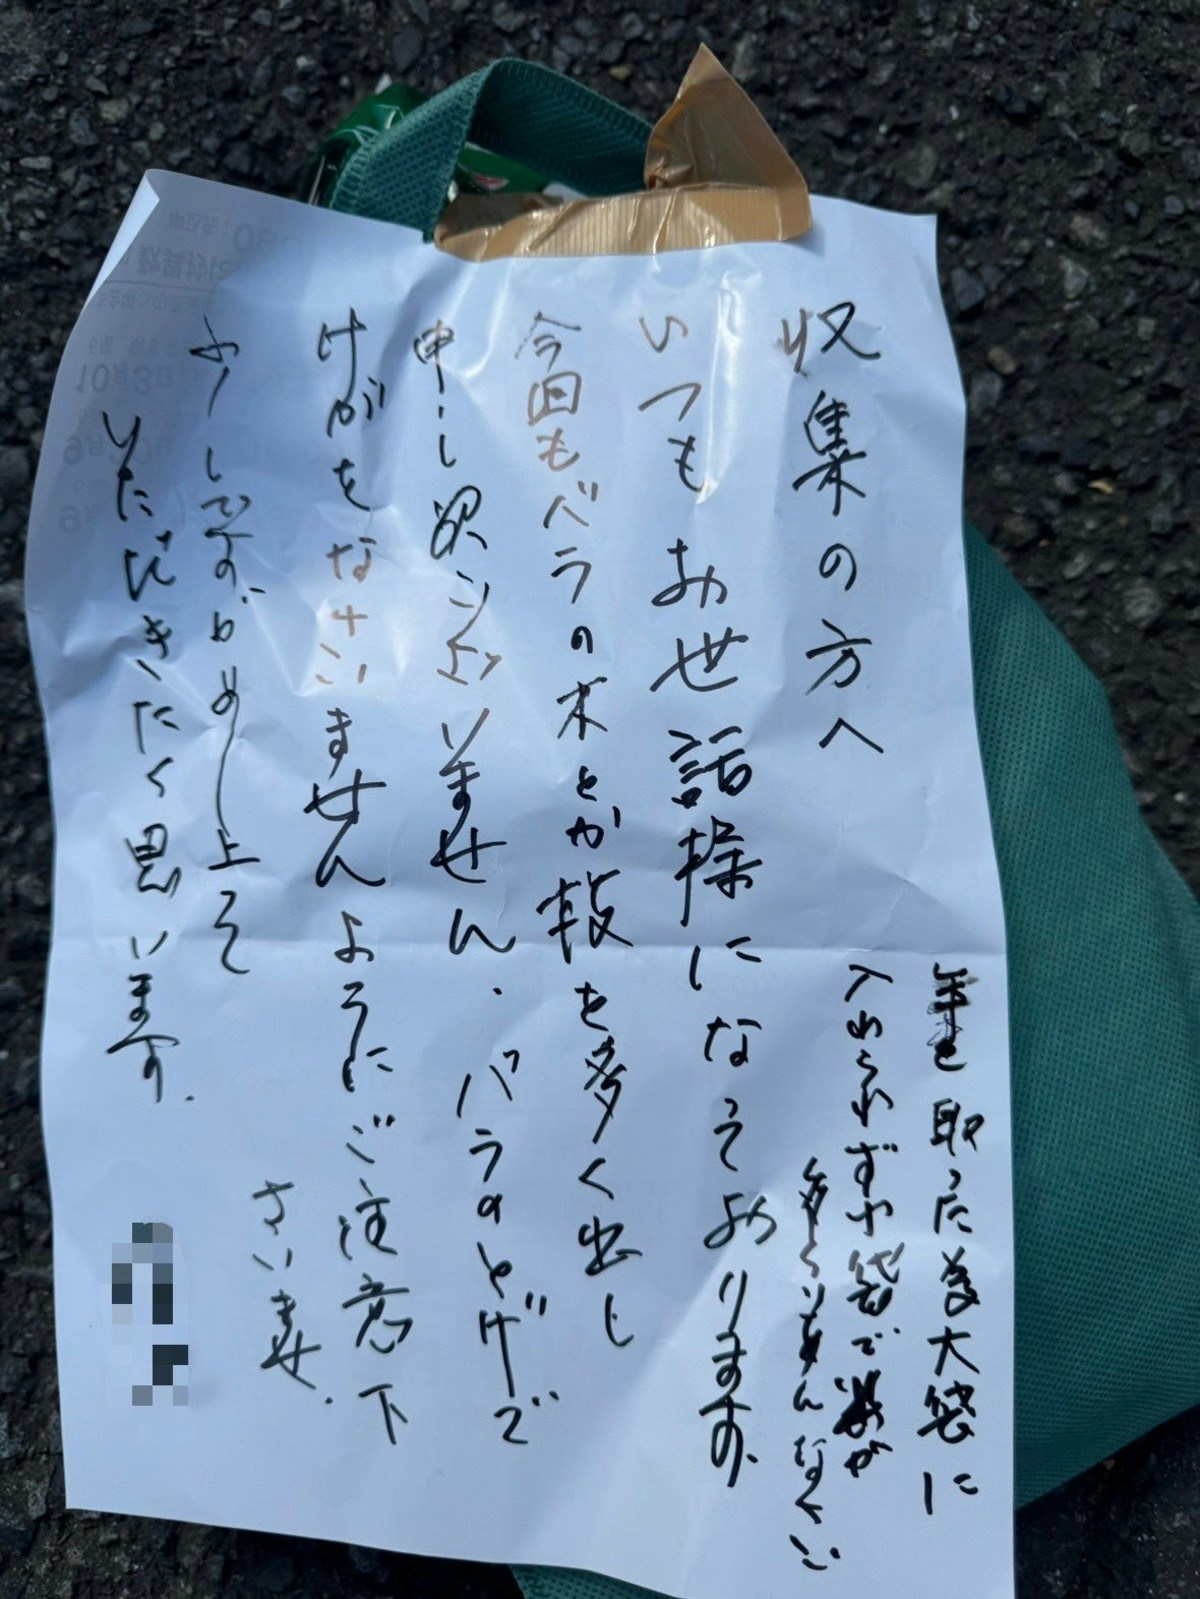 収集の方へ
いつもお世話様になっております、
今回もバラの木とか枝を多く出し
申し訳ございません。バラのとげで
けがをなさいませんようにご注意下
さいませ。
少しですがめし上て
いただきたく思います。
年を取った為大袋に
入れられず小袋で数が
多くごめんなさい